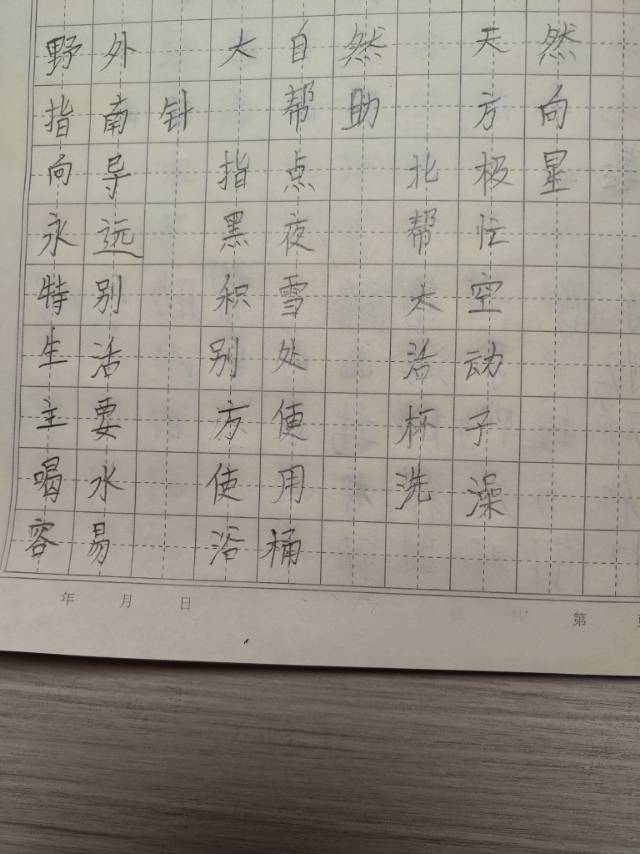 野外 大自然 天然
指南针 帮助 方向
向导 指点 北极星
永远 黑夜 帮忙
特别 积雪 太空
生活 别处 活动
主要 方便 杯子
喝水 使用 洗澡
容易 浴桶
年 月 日
第